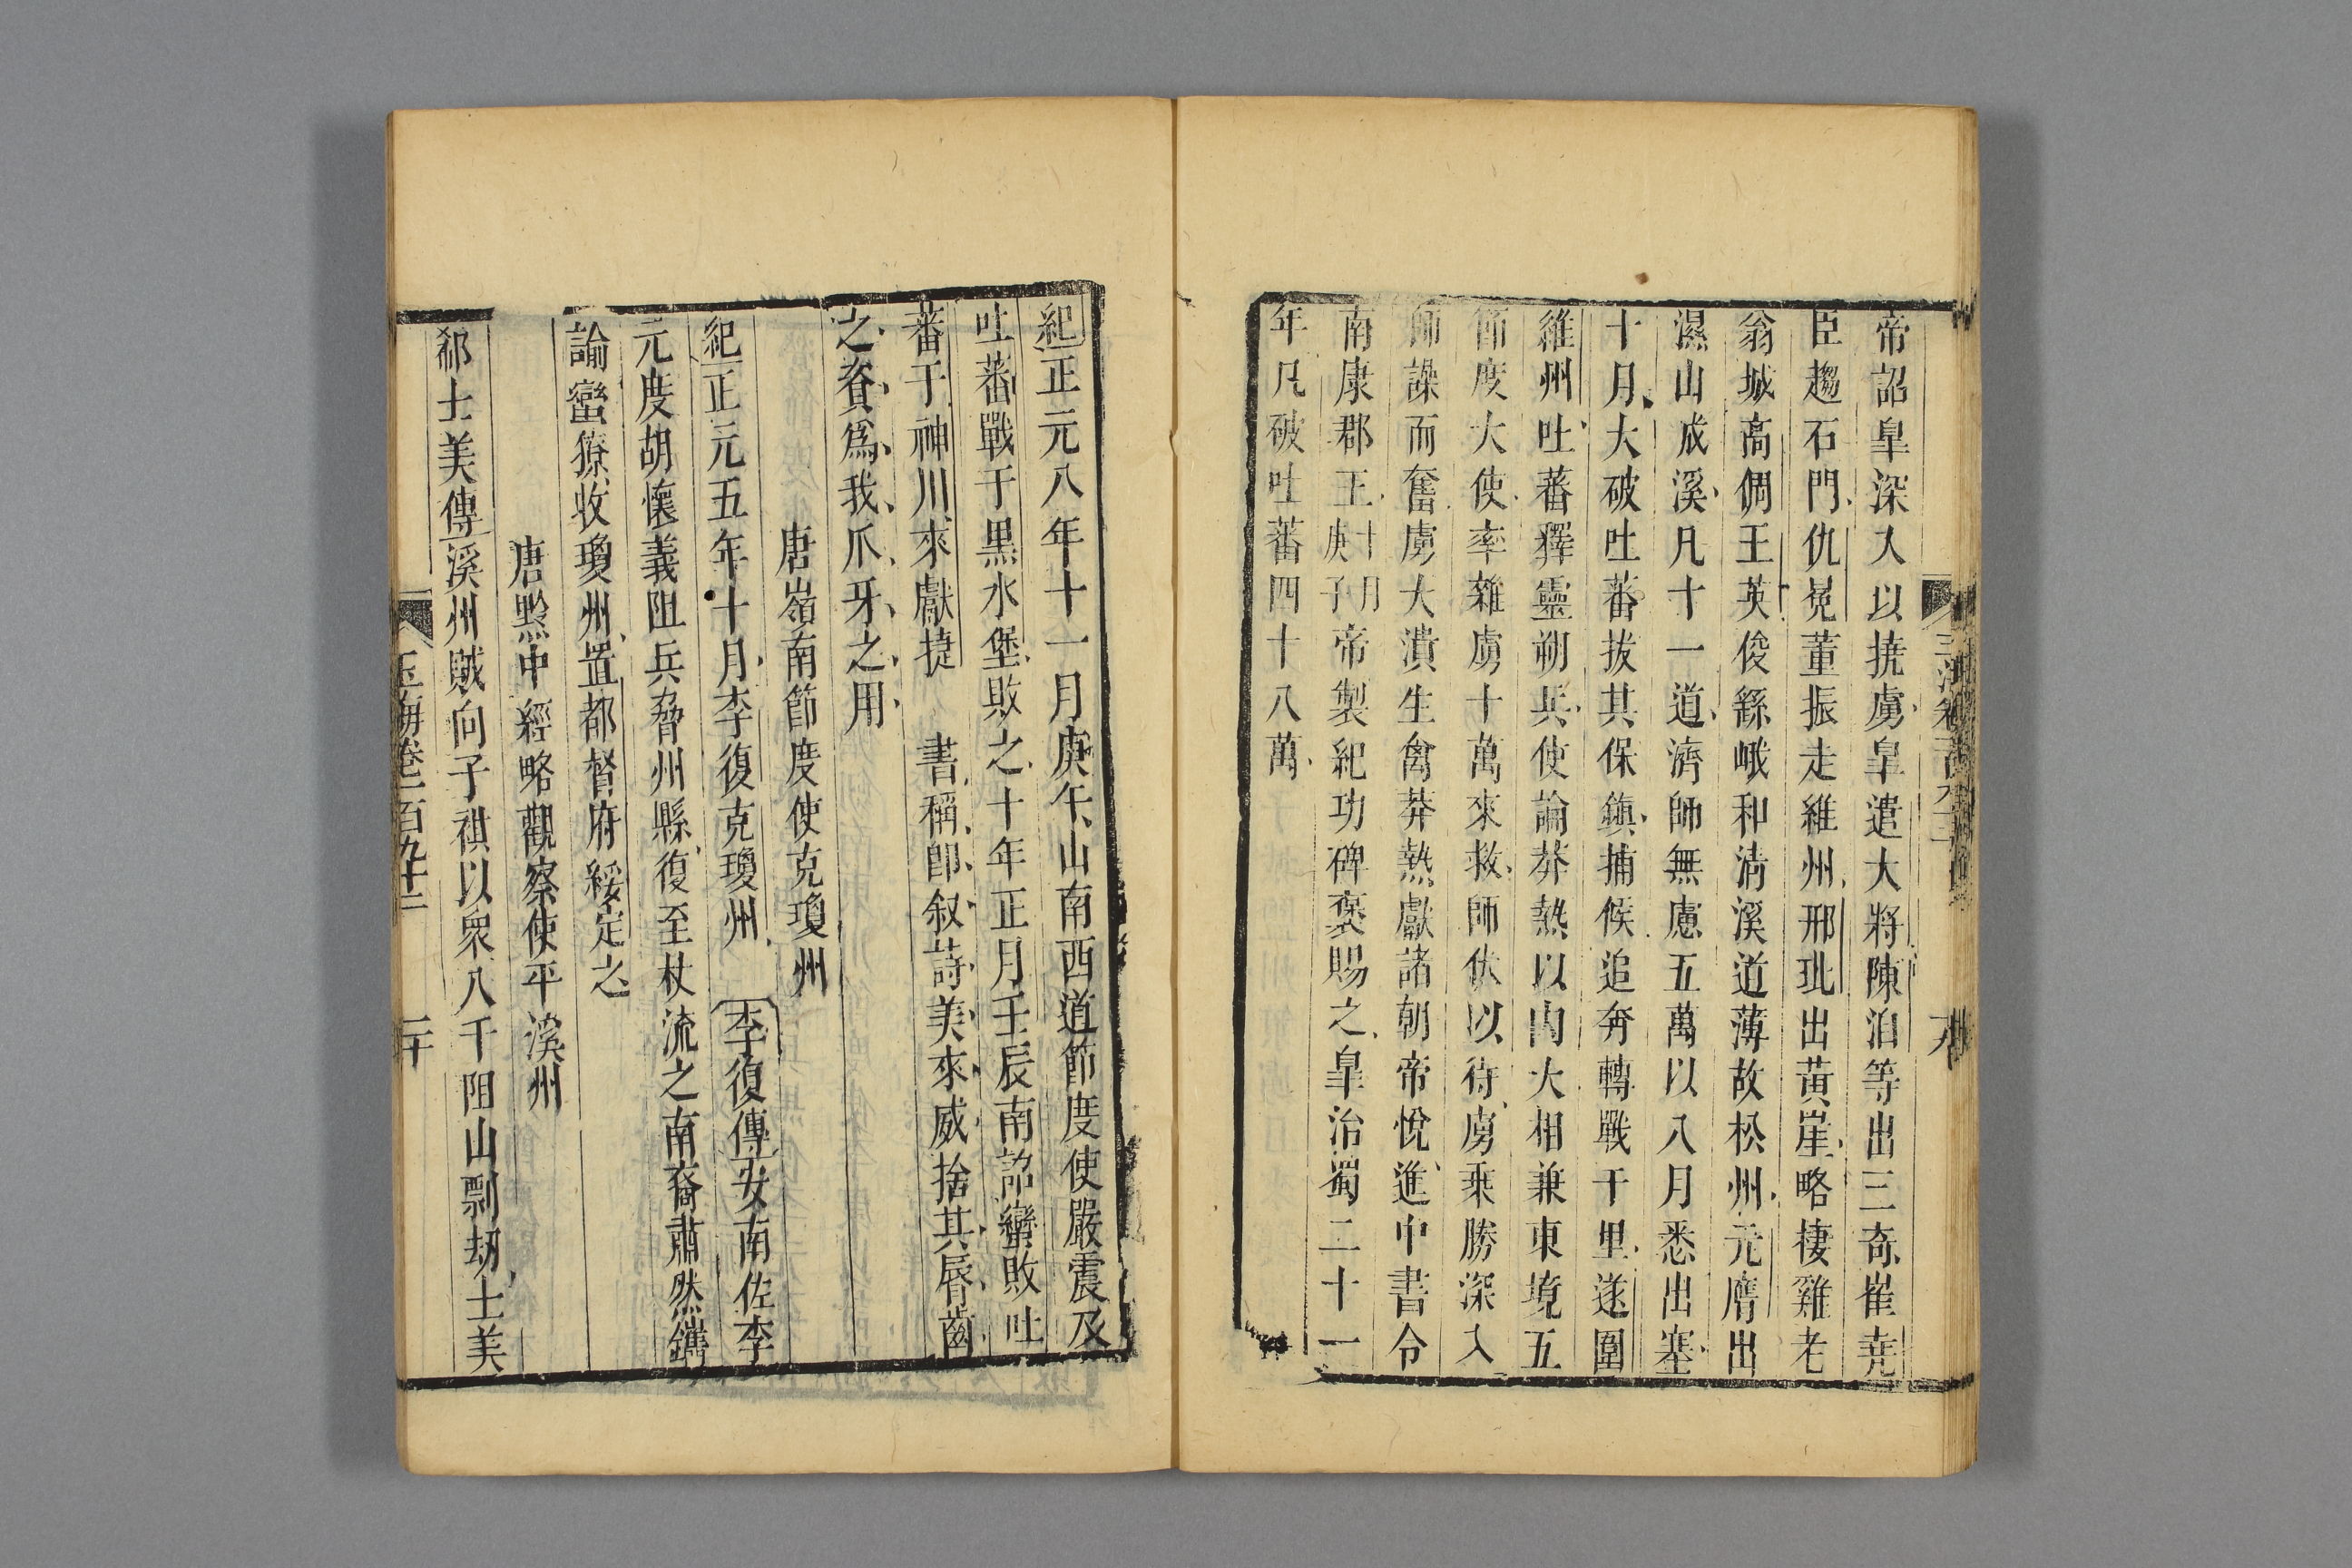 帝詔皐深入以撓虜皐遣大將陳洎等出三奇崔堯
臣趨石門仇冕董振走維州邢玼出黃崖略棲雞老
翁城高倜王英俊繇峨和清溪道薄故松州元膺出
濕山成溪凡十一道濟師無慮五萬以八月悉出塞
十月大破吐蕃拔其保鎮捕候追奔轉戰千里遂圍
維州吐蕃釋靈朔兵使論莽熱以內大相兼東境五
節度大使率雜虜十萬來救師伏以待虜乗勝深入
師譟而奮虜大潰生禽莽熱獻諸朝帝悅進中書令
南康郡王十月庚子帝製紀功碑褒賜之皐治蜀二十一
年凡破吐蕃四十八萬
紀正元八年十一月庚午山南西道節度使嚴震及
吐蕃戰于黒水堡敗之十年正月壬辰南詔蠻敗吐
蕃于神川來獻捷 書稱卽叙詩美來威捨其唇齒
之資爲我爪牙之用
唐嶺南節度使克瓊州
紀正元五年十月李復克瓊州 李復傳安南佐李
元度胡懷義阻兵脅州縣復至杖流之南裔肅然鐫
諭蠻獠收瓊州置都督府綏定之
唐黔中經略觀察使平溪州
郗士美傳溪州賊向子祺以衆八千阻山剽刼士美
玉海卷一百九十三
二十